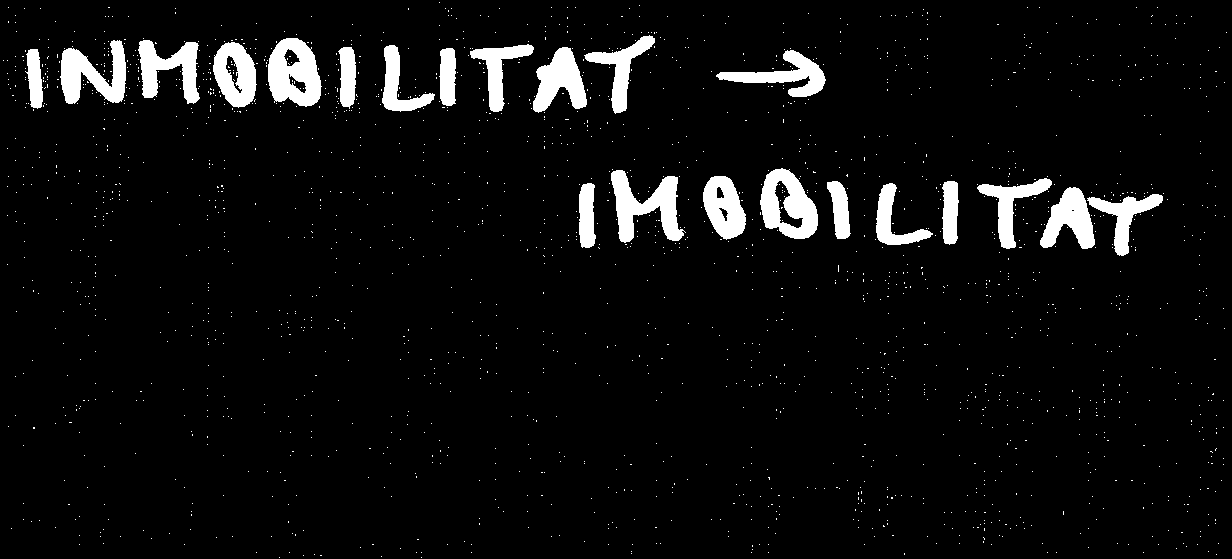 INMOBILITAT →
IMOBILITAT